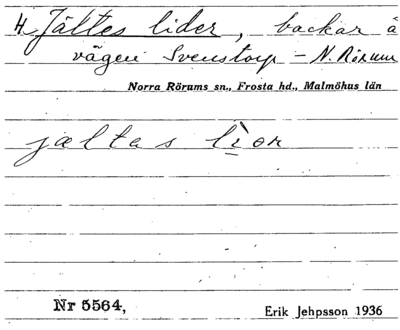 4. Jältes lider, backar å
vägen Svenstorp – N. Rörum
Norra Rörums sn., Frosta hd., Malmöhus län
jæltas lìər
Nr 5564,
Erik Jehpsson 1936